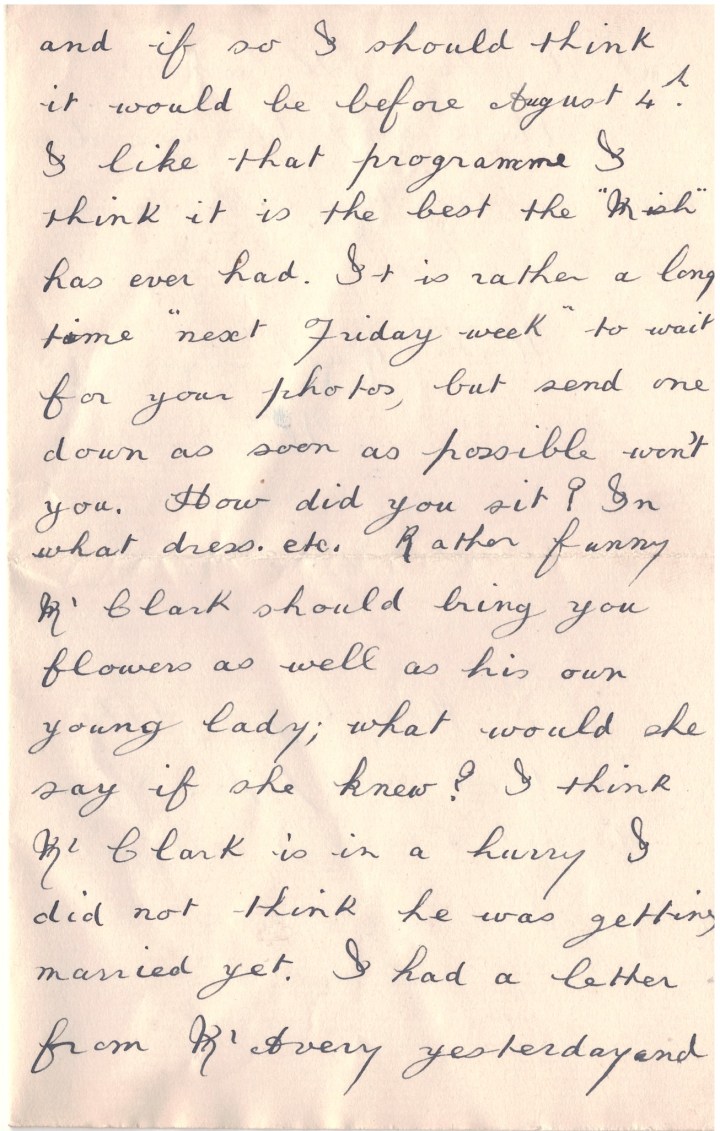 and if so I should think
it would be before August 4th.
I like that programme I
think it is the best the "Mish"
has ever had. It is rather a long
time "next Friday week" to wait
for your photos, but send one
down as soon as possible won't
you. How did you sit? In
what dress. etc. Rather funny
Mr Clark should bring you
flowers as well as his own
young lady; what would she
say if she knew? I think
Mr Clark is in a hurry I
did not think he was getting
married yet. I had a letter
from Mr Avery yesterday and